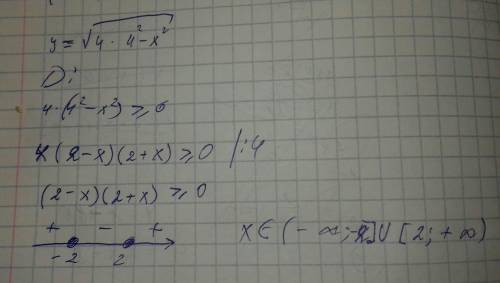 y = √4 · 4² - x²
D:
4 · (4² - x²) ≥ 0
4 (2 - x) (2 + x) ≥ 0 / : 4
(2 - x) (2 + x) ≥ 0
+ - +
-2 2
x ∈ (- ∞; -2] ∪ [2; + ∞)